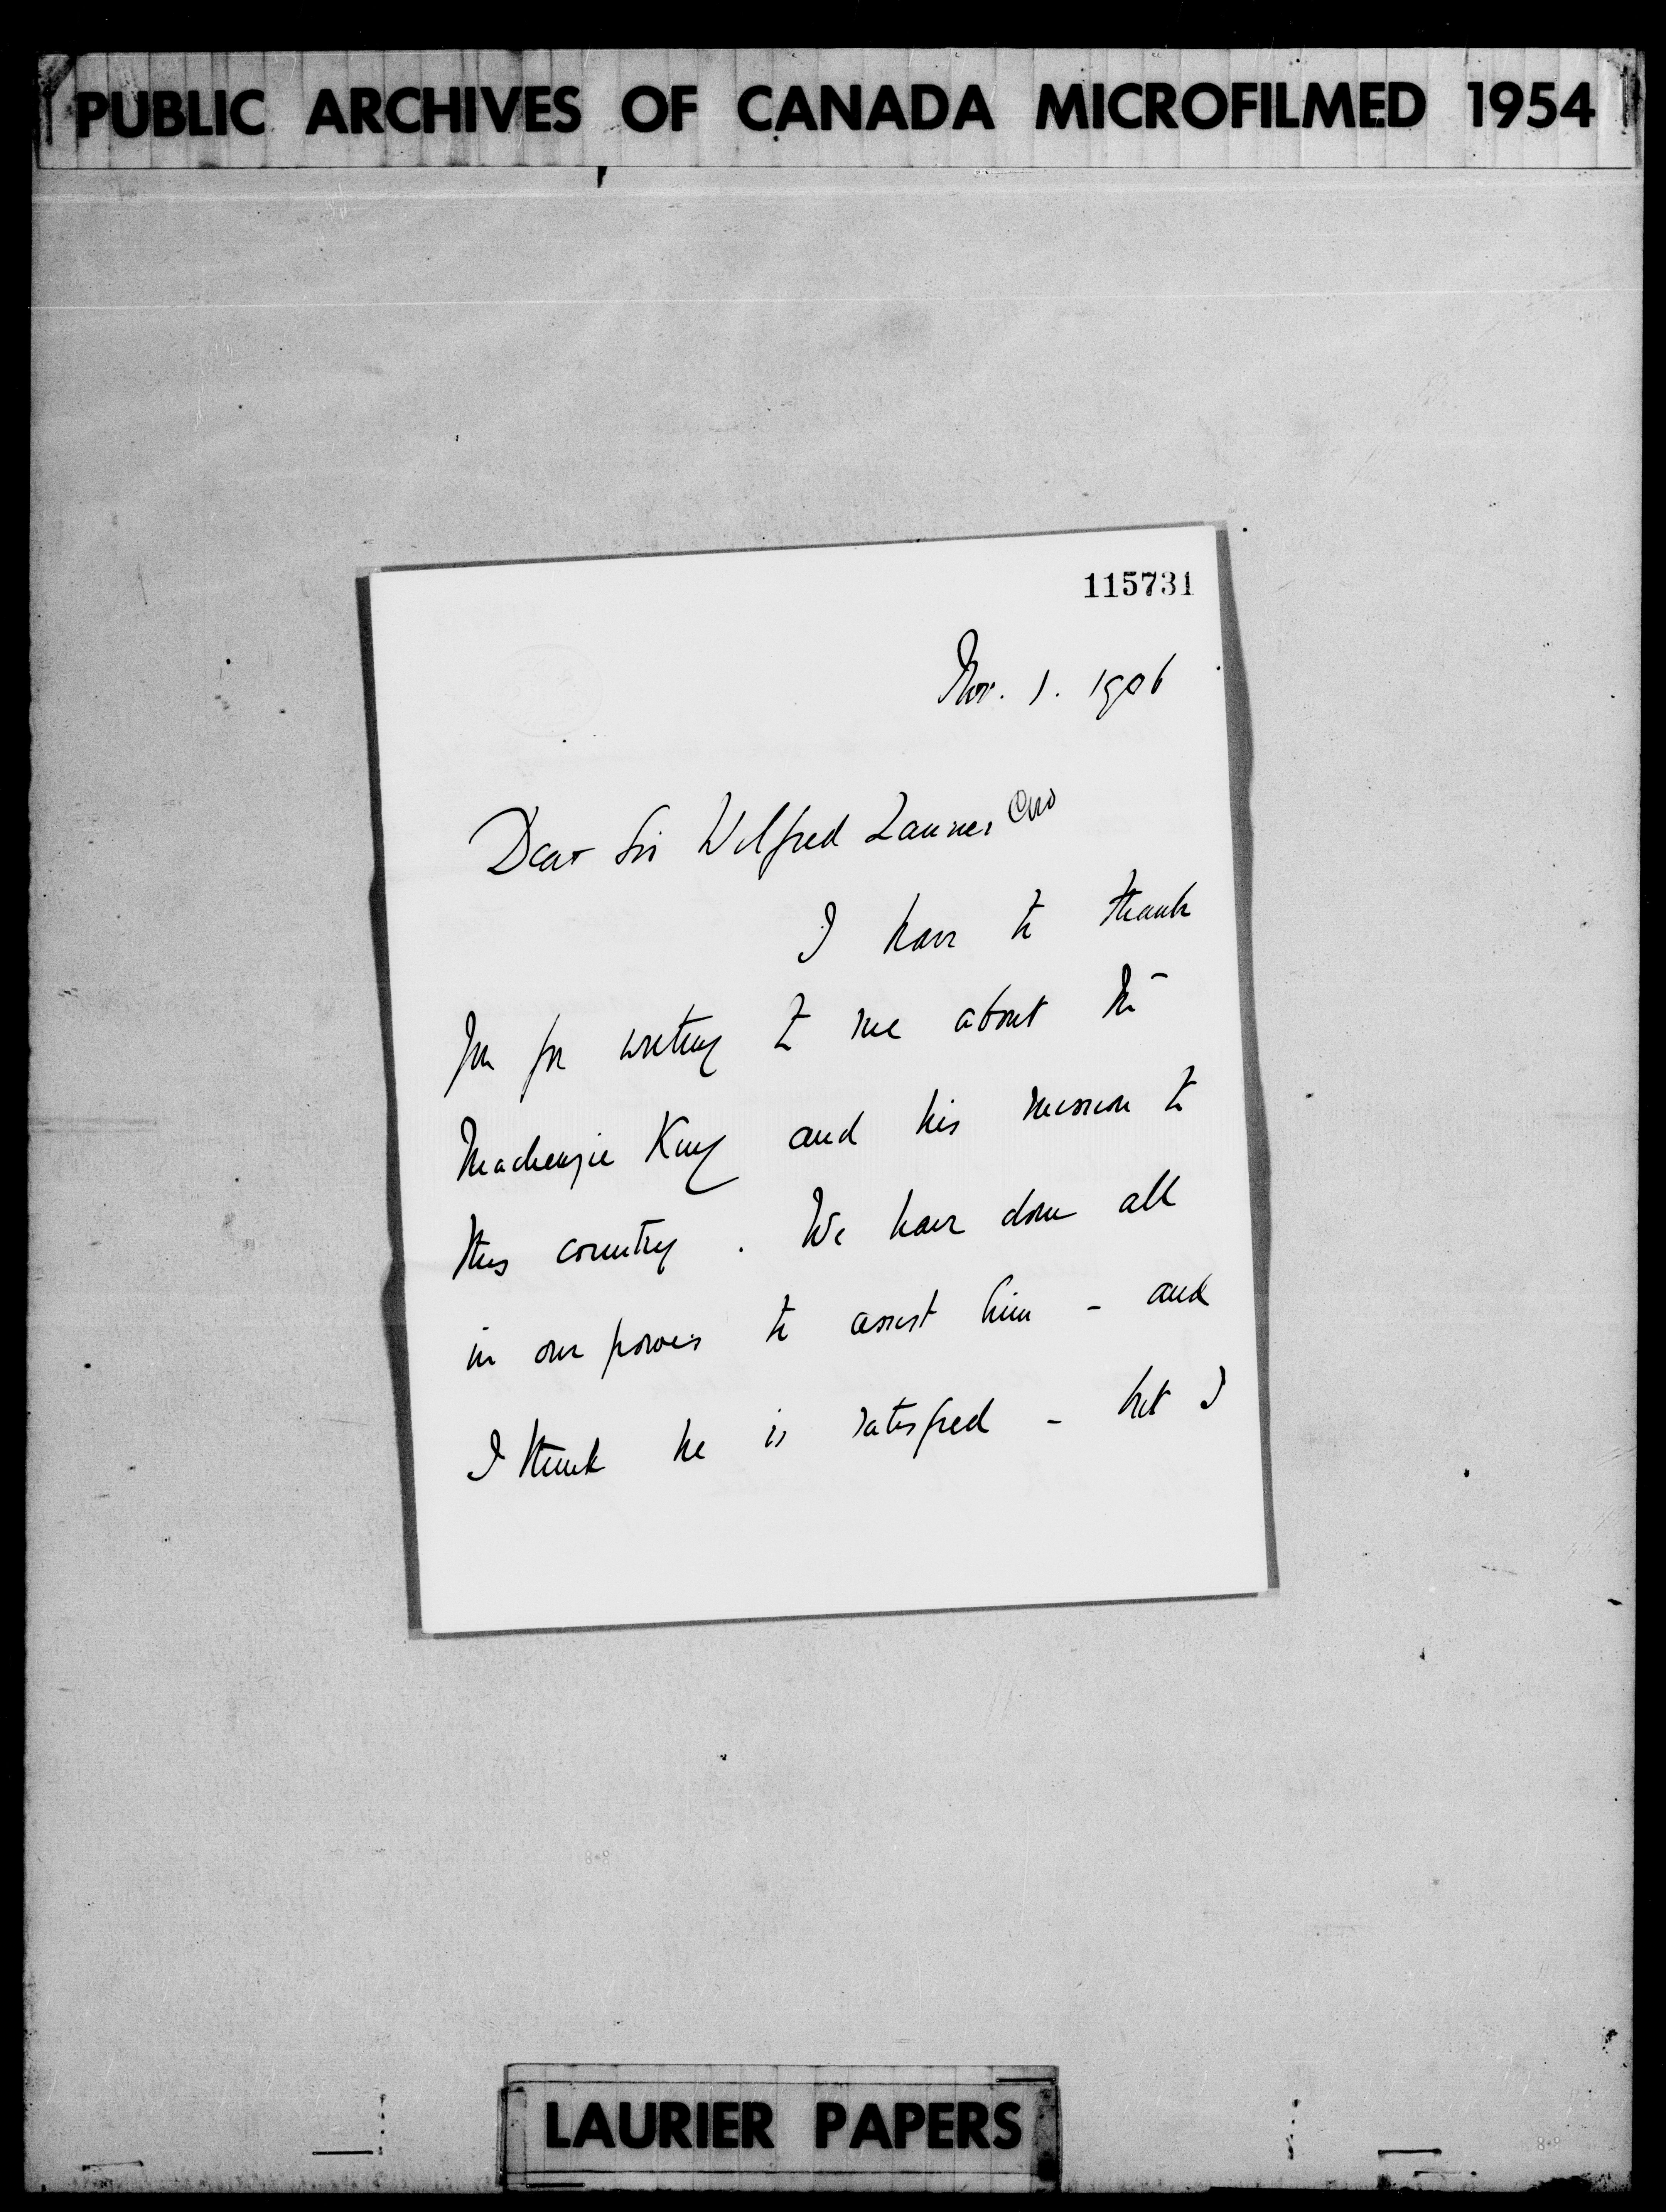 PUBLIC ARCHIVES OF CANADA MICROFILMED 1954
115731
Nov. 1. 1906
Dear Sir Wilfred Laurier
I have to thank
you for writing to me about Mr
Mackenzie King and his mission to
this country. We have done all
in our power to assist him - and
I think he is satisfied - but I
LAURIER PAPERS